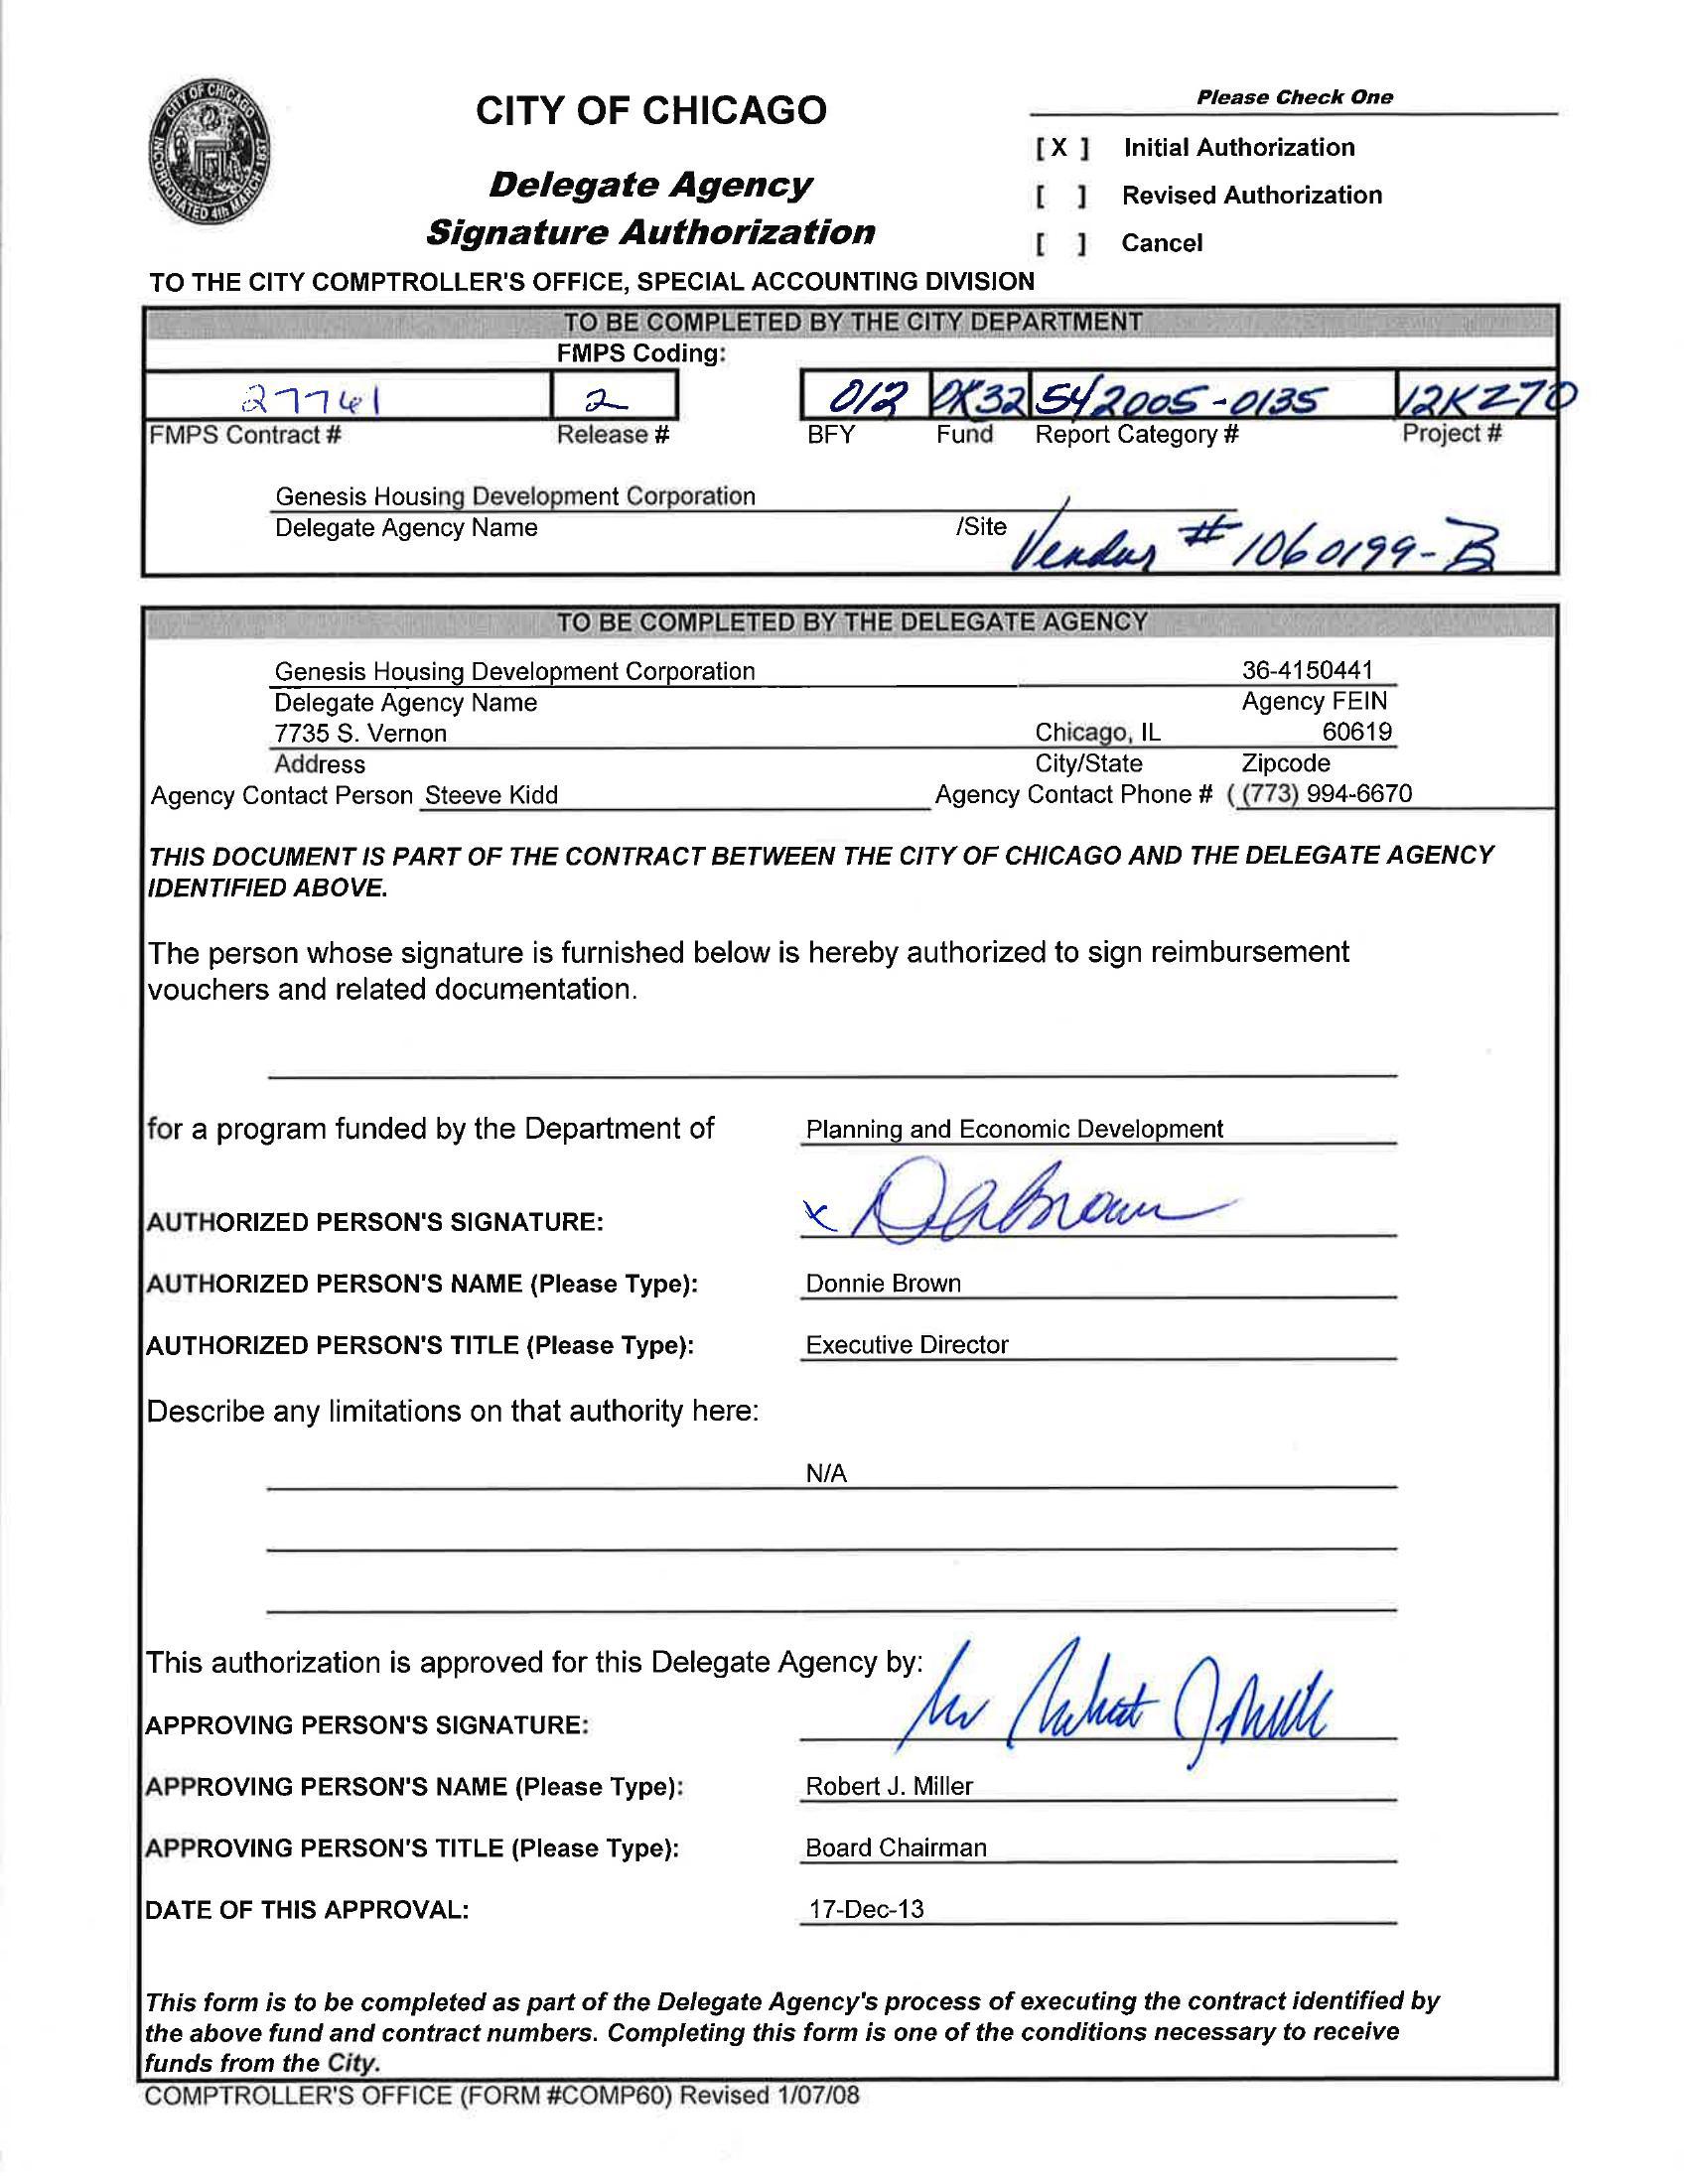 CITY OF CHICAGO
INCORPORATED 4th MARCH 1837
CITY OF CHICAGO
Delegate Agency
Signature Authorization
Please Check One
[X ] Initial Authorization
[ ] Revised Authorization
[ ] Cancel
TO THE CITY COMPTROLLER'S OFFICE, SPECIAL ACCOUNTING DIVISION
TO BE COMPLETED BY THE CITY DEPARTMENT
FMPS Coding:
27741 2 012 0K32 542005-0135 12KZ70
FMPS Contract # Release # BFY Fund Report Category # Project #
Genesis Housing Development Corporation
Delegate Agency Name /Site Vendor # 1060199-B
TO BE COMPLETED BY THE DELEGATE AGENCY
Genesis Housing Development Corporation 36-4150441
Delegate Agency Name Agency FEIN
7735 S. Vernon Chicago, IL 60619
Address City/State Zipcode
Agency Contact Person Steeve Kidd Agency Contact Phone # ( (773) 994-6670
THIS DOCUMENT IS PART OF THE CONTRACT BETWEEN THE CITY OF CHICAGO AND THE DELEGATE AGENCY
IDENTIFIED ABOVE.
The person whose signature is furnished below is hereby authorized to sign reimbursement
vouchers and related documentation.
for a program funded by the Department of Planning and Economic Development
AUTHORIZED PERSON'S SIGNATURE: x DaBrown
AUTHORIZED PERSON'S NAME (Please Type): Donnie Brown
AUTHORIZED PERSON'S TITLE (Please Type): Executive Director
Describe any limitations on that authority here:
N/A
This authorization is approved for this Delegate Agency by:
APPROVING PERSON'S SIGNATURE:
APPROVING PERSON'S NAME (Please Type): Robert J. Miller
APPROVING PERSON'S TITLE (Please Type): Board Chairman
DATE OF THIS APPROVAL: 17-Dec-13
This form is to be completed as part of the Delegate Agency's process of executing the contract identified by
the above fund and contract numbers. Completing this form is one of the conditions necessary to receive
funds from the City.
COMPTROLLER'S OFFICE (FORM #COMP60) Revised 1/07/08